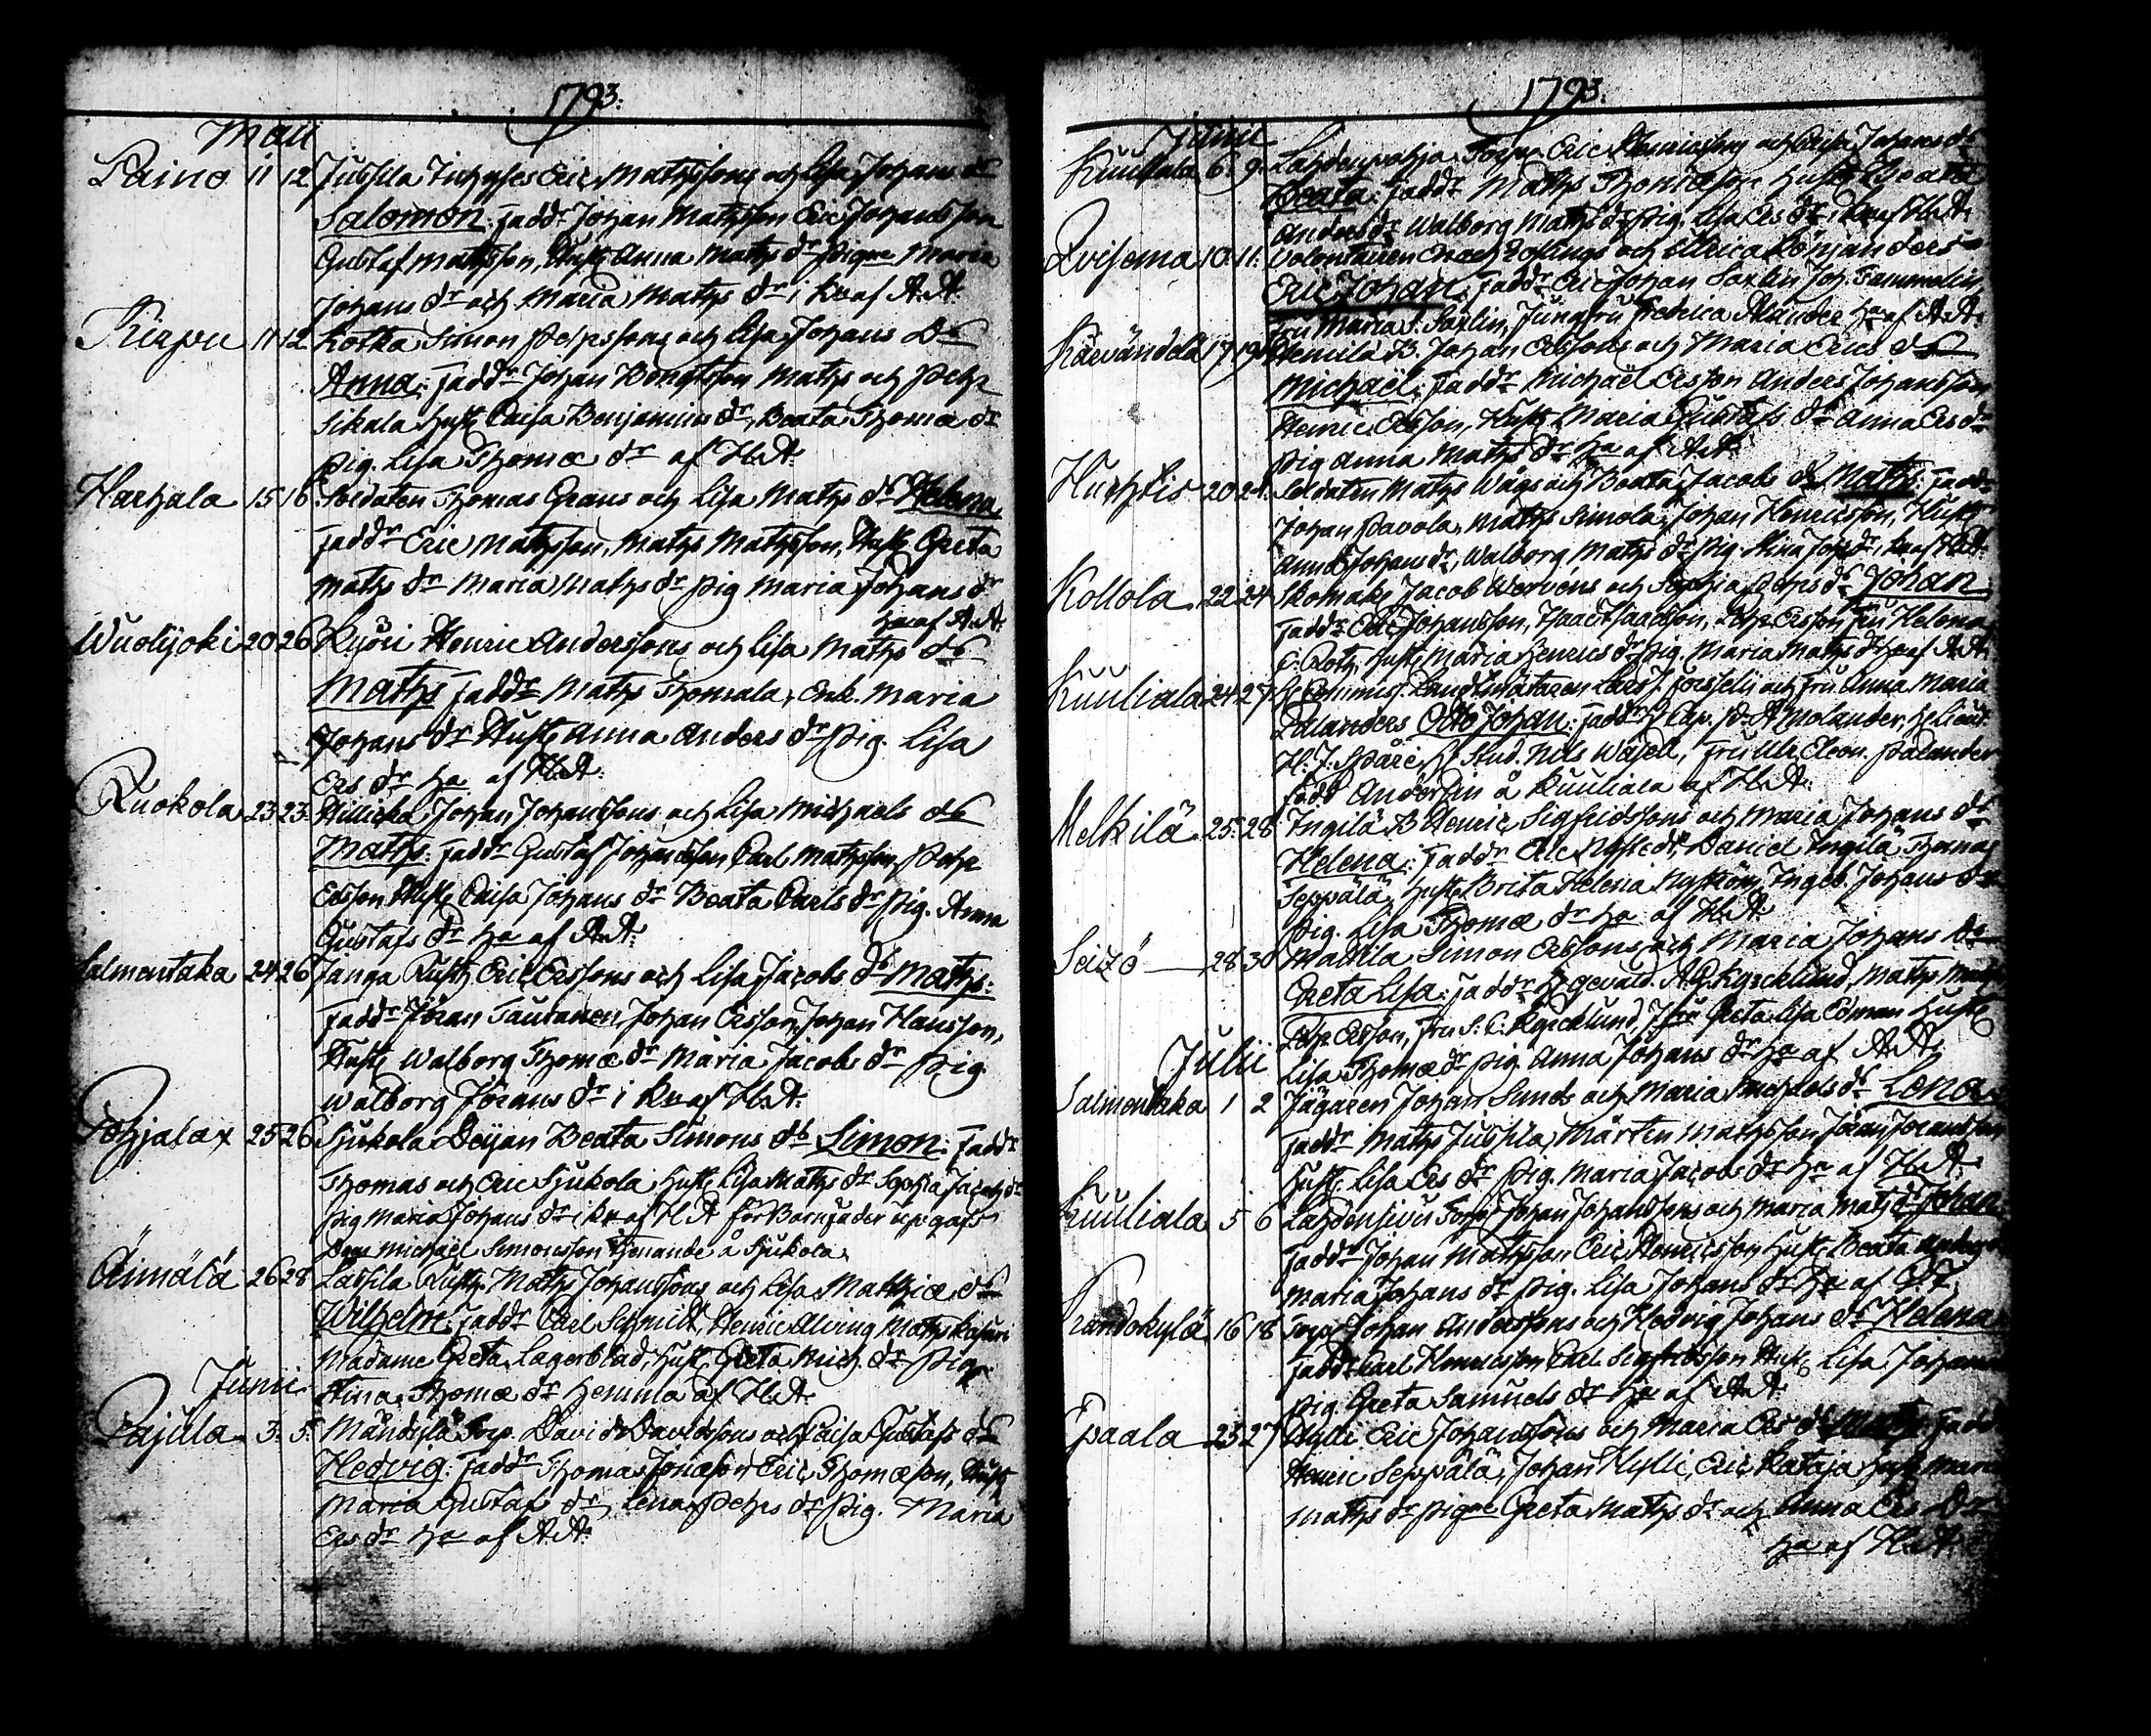 1793.
Maii
Laino 11 12 Jussila Inhyses Eric Mathssons och Lisa Johans dr
Salomon. faddr Johan Mathsson Eric Johansson
Gustaf Mathsson, Hust. Anna Maths dr Pigne Maria
Johans dr och Maria Maths dr i kv af A.A.
11 12 Kotka Simon Pehrssons och Lisa Johans Dr
Anna: faddr Johan Bengtsson Maths och Pehr
Sikala hust. Caisa Benjamins dr, Beata Thomæ dr
Pig. Lisa Thomæ dr af H.A.
Harhala 15 16 Soldaten Thomas Grans och Lisa Maths dr Helena
faddr Eric Mathsson, Maths Mathsson, Hust. Greta
Maths dr Maria Maths dr Pig Maria Johans dr
ha af A.A.
Wuolijoki 20 26 Kyöri Henric Anderssons och Lisa Maths dr
Maths faddr Maths Thomala, Enk. Maria
Johans dr Hust. Anna Anders dr Pig. Lisa
Ers dr ha af H.A.
Ruokola 23 23 Hillicka Johan Johanssons och Lisa Michaels dr
Maths: faddr Gustaf Johansson, Carl Mathsson, Pehr
Ersson Hust. Caisa Johans dr Beata Carls dr Pig. Anna
Gustafs dr ha af A.A.
Salmentaka 24 26 Janga Rusth. Eric Erssons och Lisa Jacobs dr Maths:
faddr Jöran Tauranen, Johan Ersson, Johan Hansson,
Hust. Walborg Thomæ dr Maria Jacobs dr Pig
Walborg Jörans dr i kv af H.A.
Pohjalax 25 26 Sjukola Deijan Beata Simons dr Simon: faddr
Thomas och Eric Sjukola, hust. Lisa Maths dr Sophia Jacobs dr
Pig Maria Johans dr i kv af H A för Barnfader upgafs
Dr. Michaël Simonsson tjenande å Sjukola.
Äimälä 26 28 Lassila Rusth. Maths Johanssons och Lisa Matthiæ dr
Wilhelm: faddr Carl Schmidt, Henric Alving Maths
Madame Greta Lagerblad, hust. Greta Mich. dr Pig
Stina Thomæ dr hemma af H.A.
Junii
Pajula 3. 5. Mändylä Torp. David Davidssons och Caisa Gustafs dr
Hedvig: faddr Thomas Jonæson Eric Thomæson, Hust.
Maria Gustafs dr, Lena Pehrs dr Pig. Maria
Ers dr ha af A.A.
1793.
Junii
6. 9. Lahdenpohja Torp. Eric Henricssons och Caisa Johans dr
Beata: faddr Maths Thomæson hust. Beata
Anders dr Walborg Maths dr Pig. Lisa Ers dr i kv af H.A.
10 11. Volontairen Enoch och Ulrica
Eric Johan. faddr Eric Johan Saxlin, Joh. Tammelin
Fru Maria S. Saxlin, Jungfru Fredrica Alander ha af A.A.
17 19 Hemilä B. Johan Erssons och Maria Erics dr
Michaël: faddr Michaël Ersson Anders Johansson
Henric Ersson, Hust. Maria Gustafs dr Anna Ers dr
Pig Anna Maths dr ha af A.A.
20 21. Soldaten Maths Wågs och Beata Jacobs dr Maths: faddr
Johan Pavola, Maths Simola, Johan Henricsson, Hust.
Anna Johans dr, Walborg Maths dr Pig. Stina Joh. dr, i kv af H.A.
Kollola 22 24 Skomak. Jacob Wervens och Sophia Pehrs dr Johan
faddr Eric Johansson, Isaac Isaacsson, Pehr Ersson, Fru Helena
C. Roth, hust. Maria Henrics dr Pig. Maria Maths dr ha af A.A.
Kuuliala 24 27 H. Commiss. Landtmätaren Lars J. Forsselii och Fru Anna Maria
Palanders Otto Johan: faddr H. Cap. Molander, H. Lieut.
H. J. Spåre, H. Stud. Nils Wasell, Fru Ulr. Eleon. Palander
född Anderssin å Kuuliala af H.A.
Melkilä 25. 28 Ingilä B. Henric Sigfridssons och Maria Johans dr
Helena: faddr Eric Nystedt, Daniel Ingilä Thomas
Seppälä, hust. Brita Helena Nyström, Ingeb. Johans dr
Pig. Lisa Thomæ dr ha af H.A.
28 30 Mattila Simon Erssons och Maria Johans Dr
Greta Lisa: faddr H. Gevald. A.G. Kyrcklund, Maths
Pehr Ersson, Fru S. C. Kyrcklund, Jfru Greta Lisa Edman Hust.
Lisa Thomæ dr Pig Anna Johans dr ha af A.A.
Julii
Salmentaka 1 2 Jägaren Johan Sunds och Maria Michaels dr Lena
faddr Maths Jussila, Mårten Mathsson, Jöran Jöransson
hust. Lisa Ers dr Pig. Maria Jacobs dr ha af H.A.
Kuuliala 5 6 Lahdensivu Torp. Johan Johanssons och Maria Maths dr Johan
faddr Johan Mathsson Eric Henricsson, hust. Beata
Maria Johans dr Pig. Lisa Johans dr ha af
Frändökylä 16 18 Torp. Johan Anderssons och Hedvig Johans dr Helena
faddr Carl Henricsson Carl Sigfridsson Hust. Lisa Johans
Pig. Greta Samuels dr ha af A.A.
Epaala 23 27 Kylli Eric Johanssons och Maria Ers dr Maths. faddr
Henric Seppälä, Johan Kylli, Eric Kataja hust. Maria
Maths dr Pigne Greta Maths dr och Anna Ers Dr
ha af H.A.